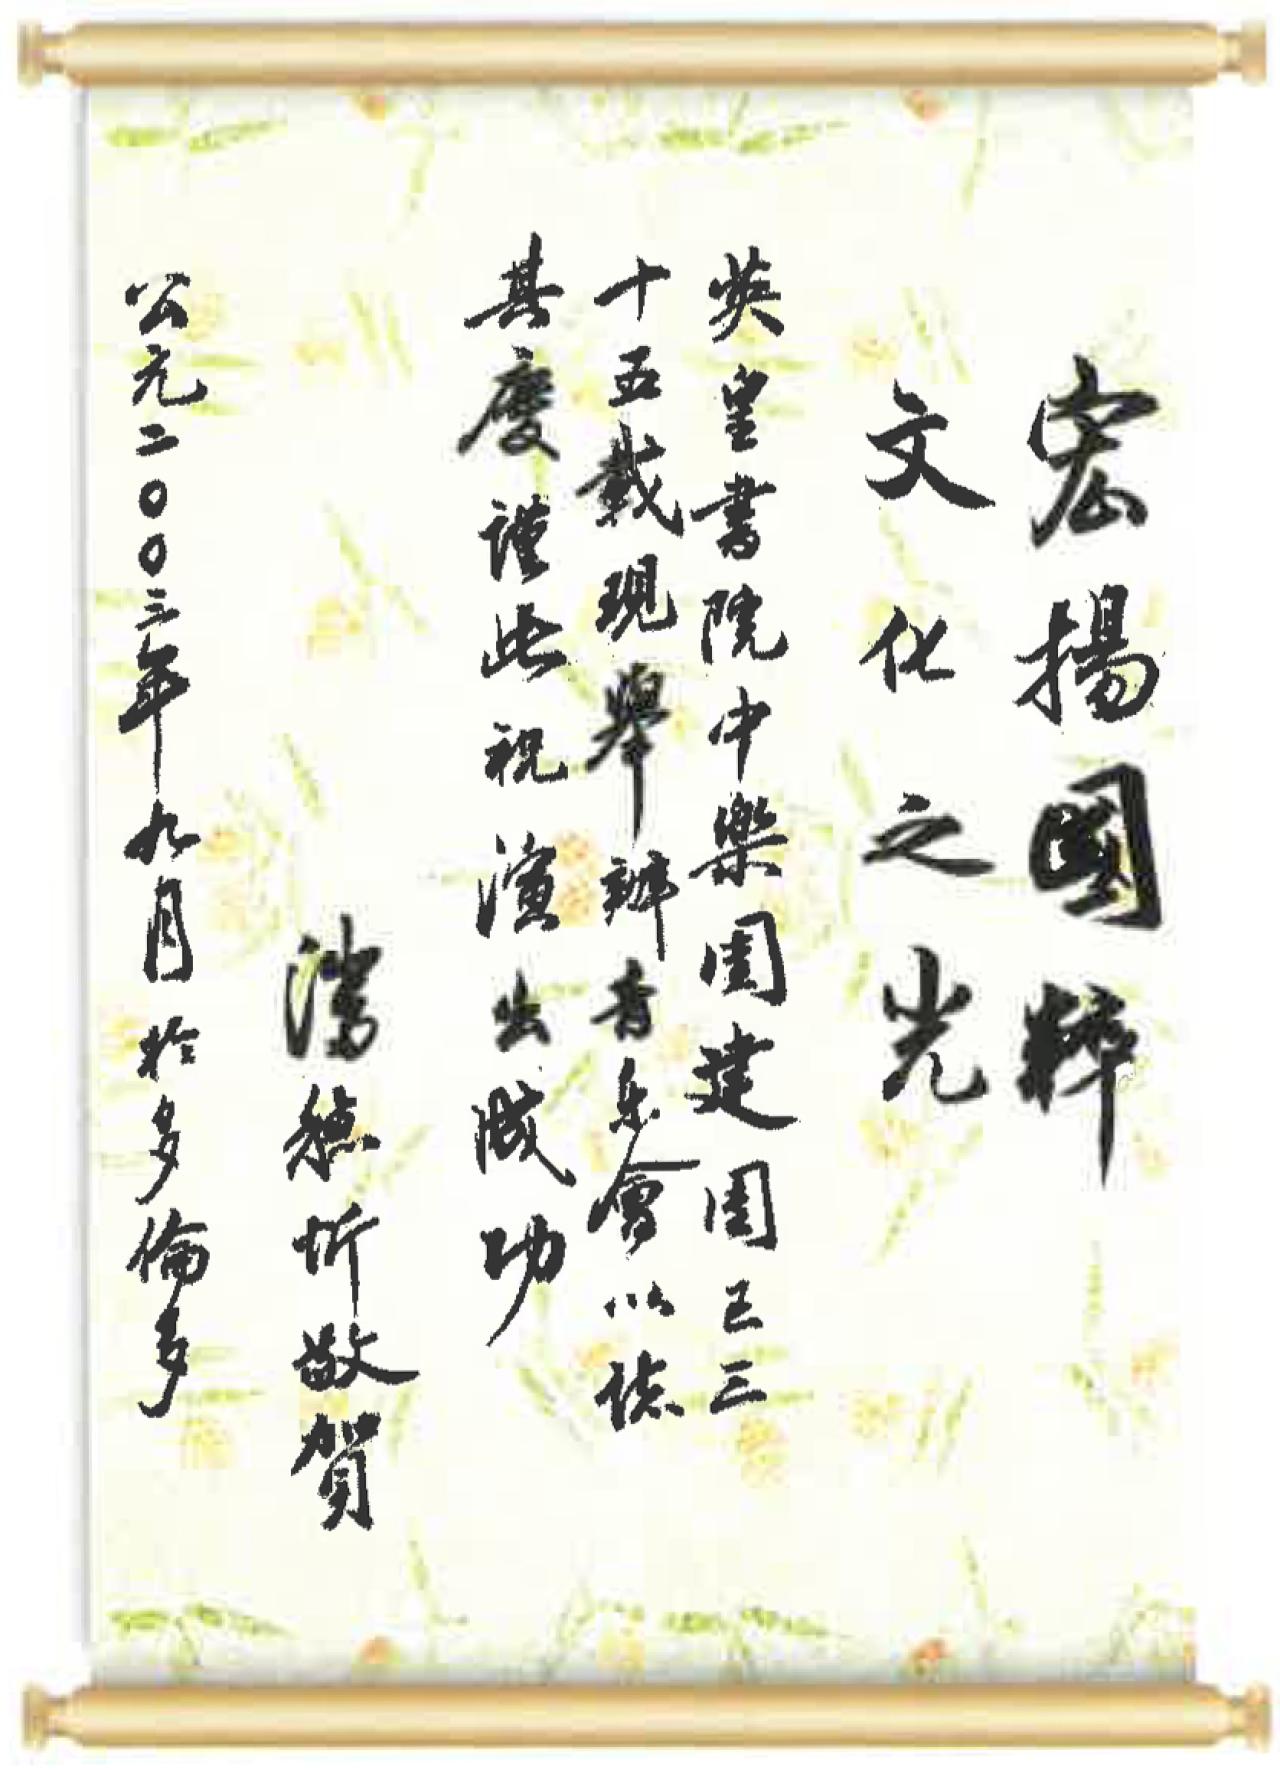 宏揚國粹
文化之光
英皇書院中樂團建團已三
十五載現舉辦音乐會以誌
其慶謹此祝演出成功
忻敬賀
公元二〇〇三年九月於多倫多